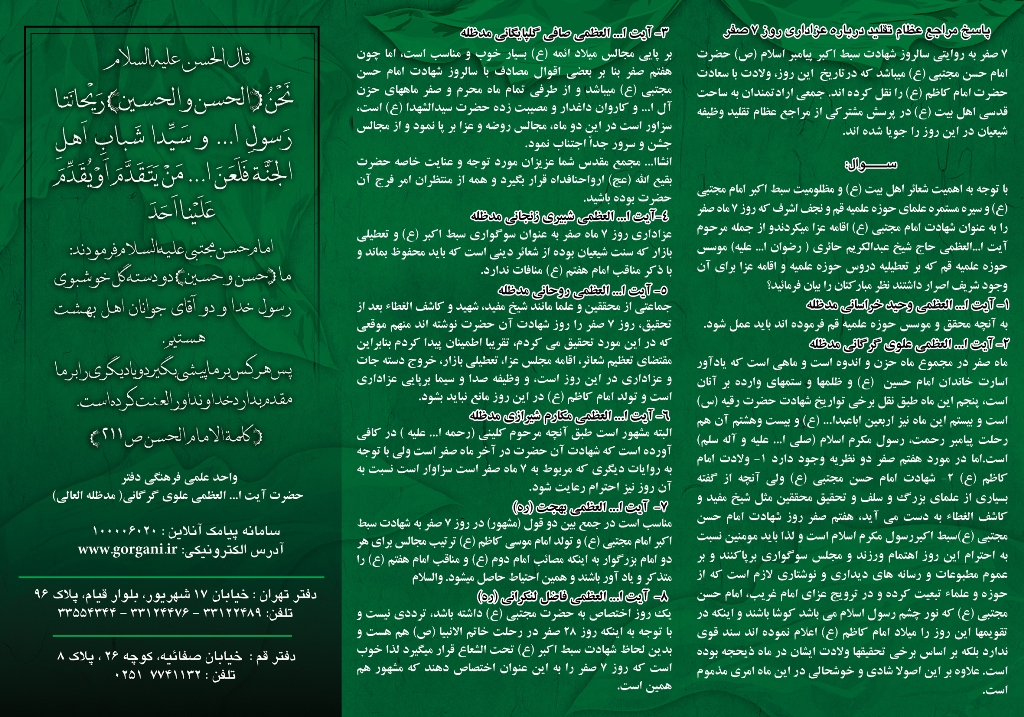 پاسخ مراجع عظام تقلید درباره عزاداری روز ۷ صفر
۷ صفر به روایتی سالروز شهادت سبط اکبر پیامبر اسلام (ص) حضرت
امام حسن مجتبی (ع) میباشد که درتاریخ این روز، ولادت با سعادت
حضرت امام کاظم (ع) را نقل کرده اند. جمعی ارادتمندان به ساحت
قدسی اهل بیت (ع) در پرسش مشترکی از مراجع عظام تقلید وظیفه
شیعیان در این روز را جویا شده اند.
ســـوال:
با توجه به اهمیت شعائر اهل بیت (ع) و مظلومیت سبط اکبر امام مجتبی
(ع) و سیره مستمره علمای حوزه علمیه قم و نجف اشرف که روز ۷ ماه صفر
را به عنوان شهادت امام مجتبی (ع) اقامه عزا میکردندو از جمله مرحوم
آیت ا...العظمی حاج شیخ عبدالکریم حائری ( رضوان ا... علیه) موسس
حوزه علمیه قم که بر تعطیلیه دروس حوزه علمیه و اقامه عزا برای آن
وجود شریف اصرار داشتند نظر مبارکتان را بیان فرمائید؟
۱- آیت ا... العظمی وحید خراسانی مدظله
به آنچه محقق و موسس حوزه علمیه قم فرموده اند باید عمل شود.
۲- آیت ا... العظمی علوی گرگانی مدظله
ماه صفر در مجموع ماه حزن و اندوه است و ماهی است که یادآور
اسارت خاندان امام حسین (ع) و ظلمها و ستمهای وارده بر آنان
است، پنجم این ماه طبق نقل برخی تواریخ شهادت حضرت رقیه (س)
است و بیستم این ماه نیز اربعین اباعبدا... (ع) و بیست وهشتم آن هم
رحلت پیامبر رحمت، رسول مکرم اسلام (صلی ا... علیه و آله سلم)
است.اما در مورد هفتم صفر دو نظریه وجود دارد ۱- ولادت امام
کاظم (ع) ۲ شهادت امام حسن مجتبی (ع) ولی آنچه از گفته
بسیاری از علمای بزرگ و سلف و تحقیق محققین مثل شیخ مفید و
کاشف الغطاء به دست می آید، هفتم صفر روز شهادت امام حسن
مجتبی (ع)سبط اکبررسول مکرم اسلام است و لذا باید مومنین نسبت
به احترام این روز اهتمام ورزند و مجلس سوگواری برپاکنند و بر
عموم مطبوعات و رسانه های دیداری و نوشتاری لازم است که از
حوزه و علماء تبعیت کرده و در ترویج عزای امام غریب، امام حسن
مجتبی (ع) که نور چشم رسول اسلام می باشد کوشا باشند و اینکه در
تقویمها این روز را میلاد امام کاظم (ع) اعلام نموده اند سند قوی
ندارد بلکه بر اساس برخی تحقیقها ولادت ایشان در ماه ذیحجه بوده
است. علاوه بر این اصولا شادی و خوشحالی در این ماه امری مذموم
است.
۳- آیت ا... العظمی صافی گلپایگانی مدظله
بر پایی مجالس میلاد ائمه (ع) بسیار خوب و مناسب است، اما چون
هفتم صفر بنا بر بعضی اقوال مصادف با سالروز شهادت امام حسن
مجتبی (ع) میباشد و از طرفی تمام ماه محرم و صفر ماههای حزن
آل ا... و کاروان داغدار و مصیبت زده حضرت سیدالشهدا (ع) است،
سزاور است در این دو ماه، مجالس روضه و عزا بر پا نمود و از مجالس
جشن و سرور جداً اجتناب نمود.
انشاا... مجمع مقدس شما عزیزان مورد توجه و عنایت خاصه حضرت
بقیع الله (عج) ارواحنافداه قرار بگیرد و همه از منتظران امر فرج آن
حضرت بوده باشید.
۴-آیت ا... العظمی شبیری زنجانی مدظله
عزاداری روز ۷ ماه صفر به عنوان سوگواری سبط اکبر (ع) و تعطیلی
بازار که سنت شیعیان بوده از شعائر دینی است که باید محفوظ بماند و
با ذکر مناقب امام هفتم (ع) منافات ندارد.
۵- آیت ا... العظمی روحانی مدظله
جماعتی از محققین و علما مانند شیخ مفید، شهید و کاشف الغطاء بعد از
تحقیق، روز ۷ صفر را روز شهادت آن حضرت نوشته اند منهم موقعی
که در این مورد تحقیق می کردم، تقریبا اطمینان پیدا کردم بنابراین
مقتضای تعظیم شعائر، اقامه مجلس عزا، تعطیلی بازار، خروج دسته جات
و عزاداری در این روز است، و وظیفه صدا و سیما برپایی عزاداری
است و تولد امام کاظم (ع) در این روز مانع نباید بشود.
۶- آیت ا... العظمی مکارم شیرازی مدظله
البته مشهور است طبق آنچه مرحوم کلینی (رحمه ا... علیه ) در کافی
آورده است که شهادت آن حضرت در آخر ماه صفر است ولی با توجه
به روایات دیگری که مربوط به ۷ ماه صفر است سزاوار است نسبت به
آن روز نیز احترام رعایت شود.
۷- آیت ا... العظمی بهجت (ره)
مناسب است در جمع بین دو قول (مشهور) در روز ۷ صفر به شهادت سبط
اکبر امام مجتبی (ع) و تولد امام موسی کاظم (ع) ترتیب مجالس برای هر
دو امام بزرگوار به اینکه مصائب امام دوم (ع) و مناقب امام هفتم (ع) را
متذکر و یاد آور باشند و همین احتیاط حاصل میشود. والسلام
۸- آیت ا... العظمی فاضل لنکرانی (ره)
یک روز اختصاص به حضرت مجتبی (ع) داشته باشد، ترددی نیست و
با توجه به اینکه روز ۲۸ صفر در رحلت خاتم الانبیا (ص) هم هست و
بدین لحاظ شهادت سبط اکبر (ع) تحت الشعاع قرار میگیرد لذا خوب
است که روز ۷ صفر را به این عنوان اختصاص دهند که مشهور هم
همین است.
قال الحسن علیه السلام
نَحْنُ ﴿الحسن و الحسین﴾ رَیْحانَتا
رَسولِ ا... و سَیِّدا شَبابِ اَهلِ
الجَنَّة فَلَعَنَ ا... مَنْ یَتَقَدَّمَ اَوْ یُقَدِّمَ
عَلَیْنا اَحَدَ
امام حسن مجتبی علیه السلام فرمودند:
ما ﴿حسن و حسین﴾ دو دسته گل خوشبوی
رسول خدا و دو آقای جوانان اهل بهشت
هستیم.
پس هر کس بر ما پیشی بگیرد و یا دیگری را بر ما
مقدم بدارد خداوند او را لعنت کرده است.
﴿کلمة الامام الحسن ص ۲۱۱﴾
واحد علمی فرهنگی دفتر
حضرت آیت ا... العظمی علوی گرگانی( مدظله العالی)
سامانه پیامک آنلاین : ۱۰۰۰۰۶۰۲۰
آدرس الکترونیکی: www.gorgani.ir
دفتر تهران : خیابان ۱۷ شهریور، بلوار قیام، پلاک ۹۶
تلفن: ۳۳۱۲۲۴۸۹ - ۳۳۱۲۴۴۷۶ - ۳۳۵۵۴۳۴۴
دفتر قم : خیابان صفائیه، کوچه ۲۶ ، پلاک ۸
تلفن : ۷۷۴۱۱۳۲ ۰۲۵۱